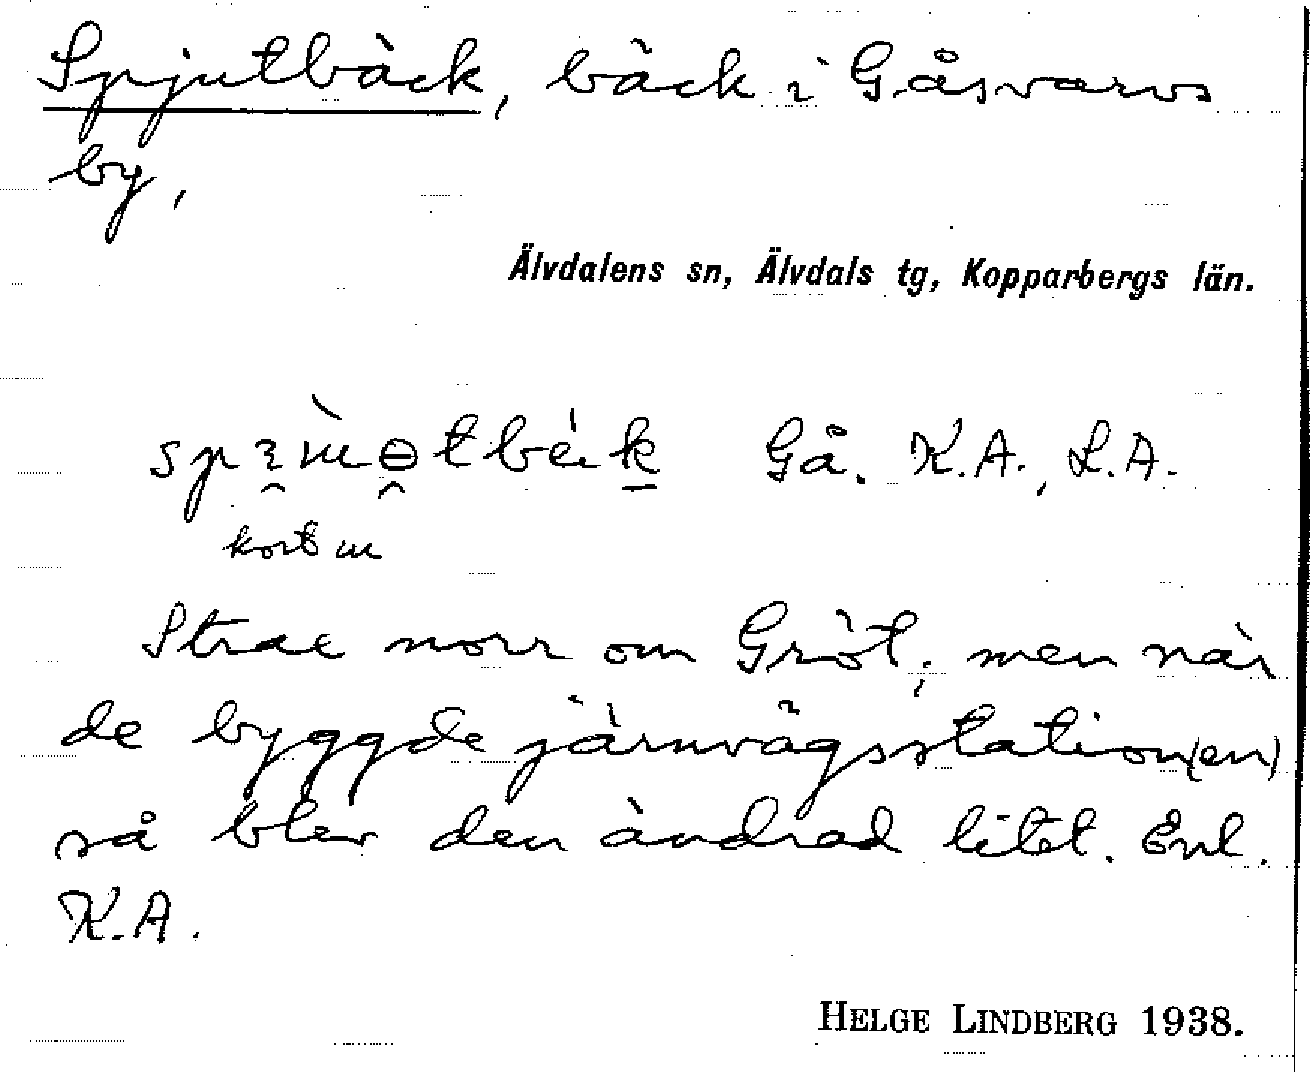 Spjutbäck, bäck i Gåsvarvs
by,
Älvdalens sn, Älvdals tg, Kopparbergs län.
Gå. K.A., L.A.
kort
Strax norr om Gröt, men när
de byggde järnvägsstation(en)
så blev den ändrad litet. Enl.
K.A.
HELGE LINDBERG 1938.